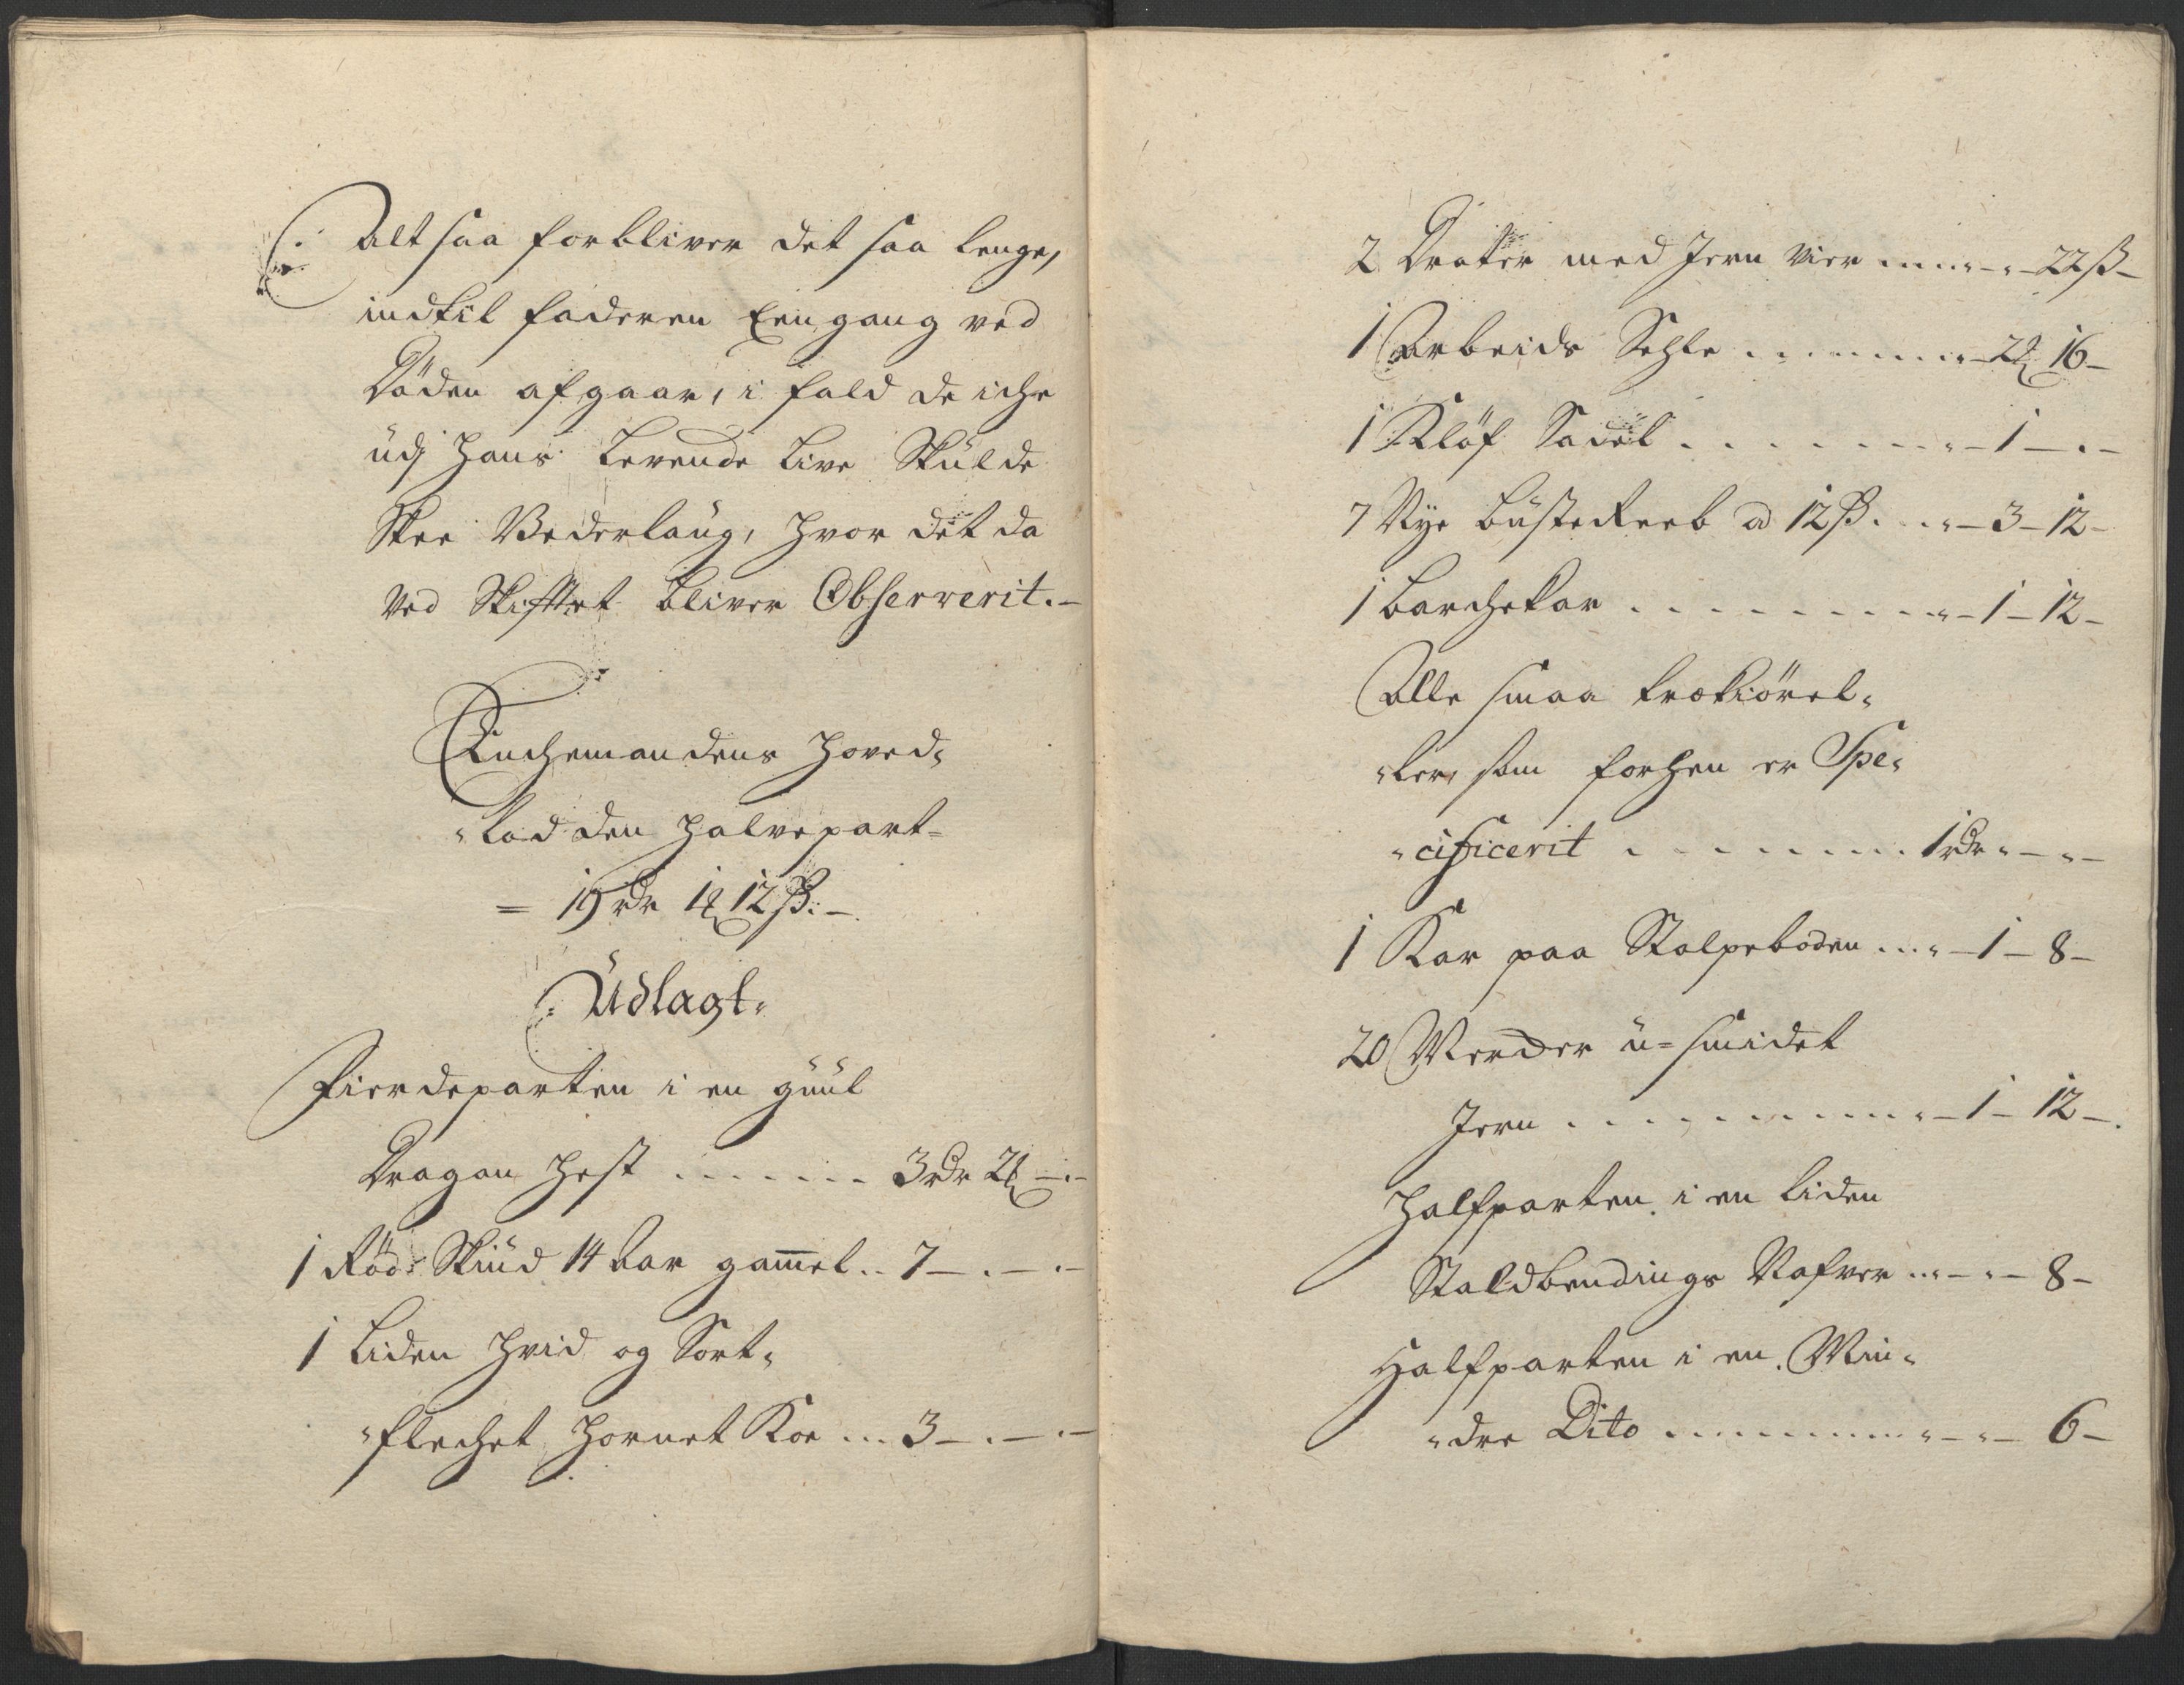 Alt saa forbliver det saa lenge,
indtil faderen Eengang ved
Döden afgaar, i fald de iche
udj hans Levende Live Skulde
Skee Vederlaug, hvor det da
ved Skifftet bliver Observerit.-
Enchemandens hoved=
=Lod den halvepart=
= 19 rdr 1 12 ß.-
Udlagt.
Fierdeparten i en guul
Dragon hest ...... 3 rdr 2 -.-
1 Röd Skiud 14 Aar gammel .. 7-.-.-
1 Liden hvid og Sort=
=flechet hornet Koe ... 3-.-.-
2 Drotter med Jern vier ....-22 ß-
1 Arbeids Sehle ........-2 16-
1 Klöf Sadel .......-1-.-
7 Nye Buste Reeb a 12 ß ...-3-12-
1 Barchekar ..........-1-12-
Alle smaa træ Kiörel=
=ler, som forhen er Spe=
=cificerit ....... 1 rdr.-.-
1 Kar paa Stolpeboden ...-1-8-
20 Merder u=smidet
Jern ..........-1-12-.
halfparten i en liden
Staldbendings Nafver ..-.-8-
Halfparten i en Min=
=dre Dito .........-.-6-